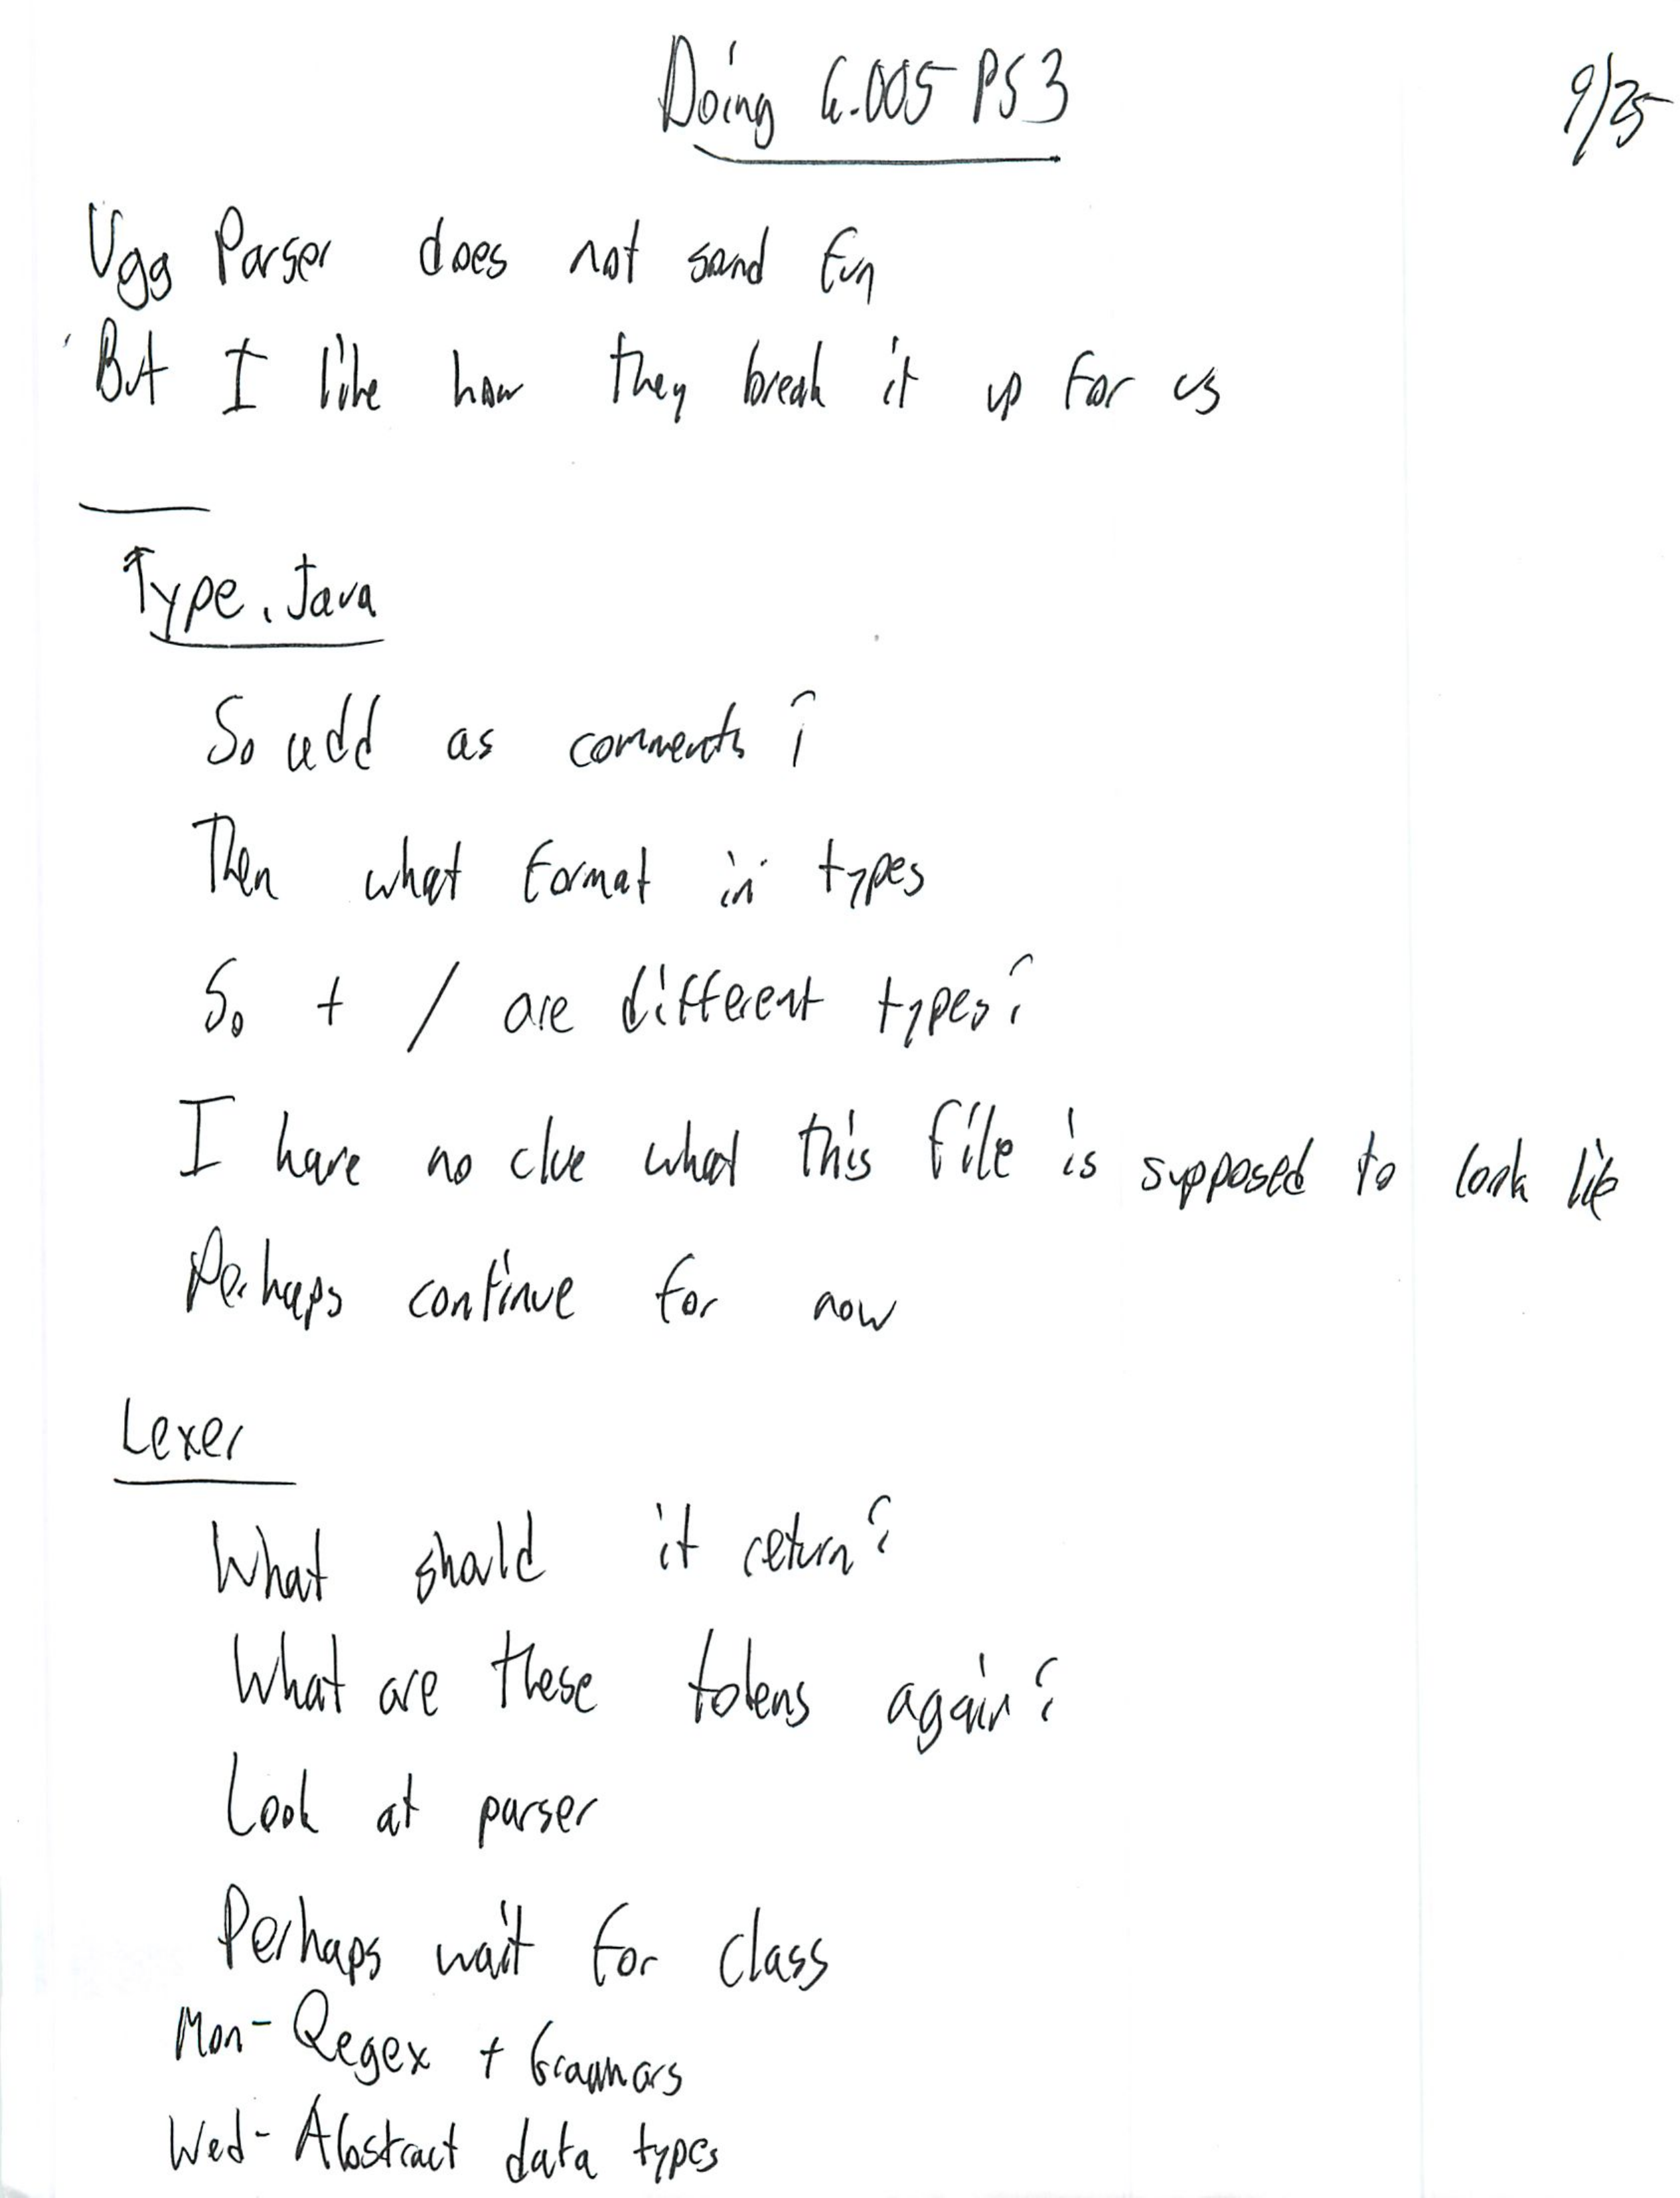 Doing 6.005 PS3
9/25
Ugg Parser does not sound fun
But I like how they break it up for us
Type.Java
So add as comments?
Then what format in types
So + / are different types?
I have no clue what this file is supposed to look like
Perhaps continue for now
Lexer
What should it return?
What are these tokens again?
Look at parser
Perhaps wait for class
Mon- Regex + Grammars
Wed- Abstract data types